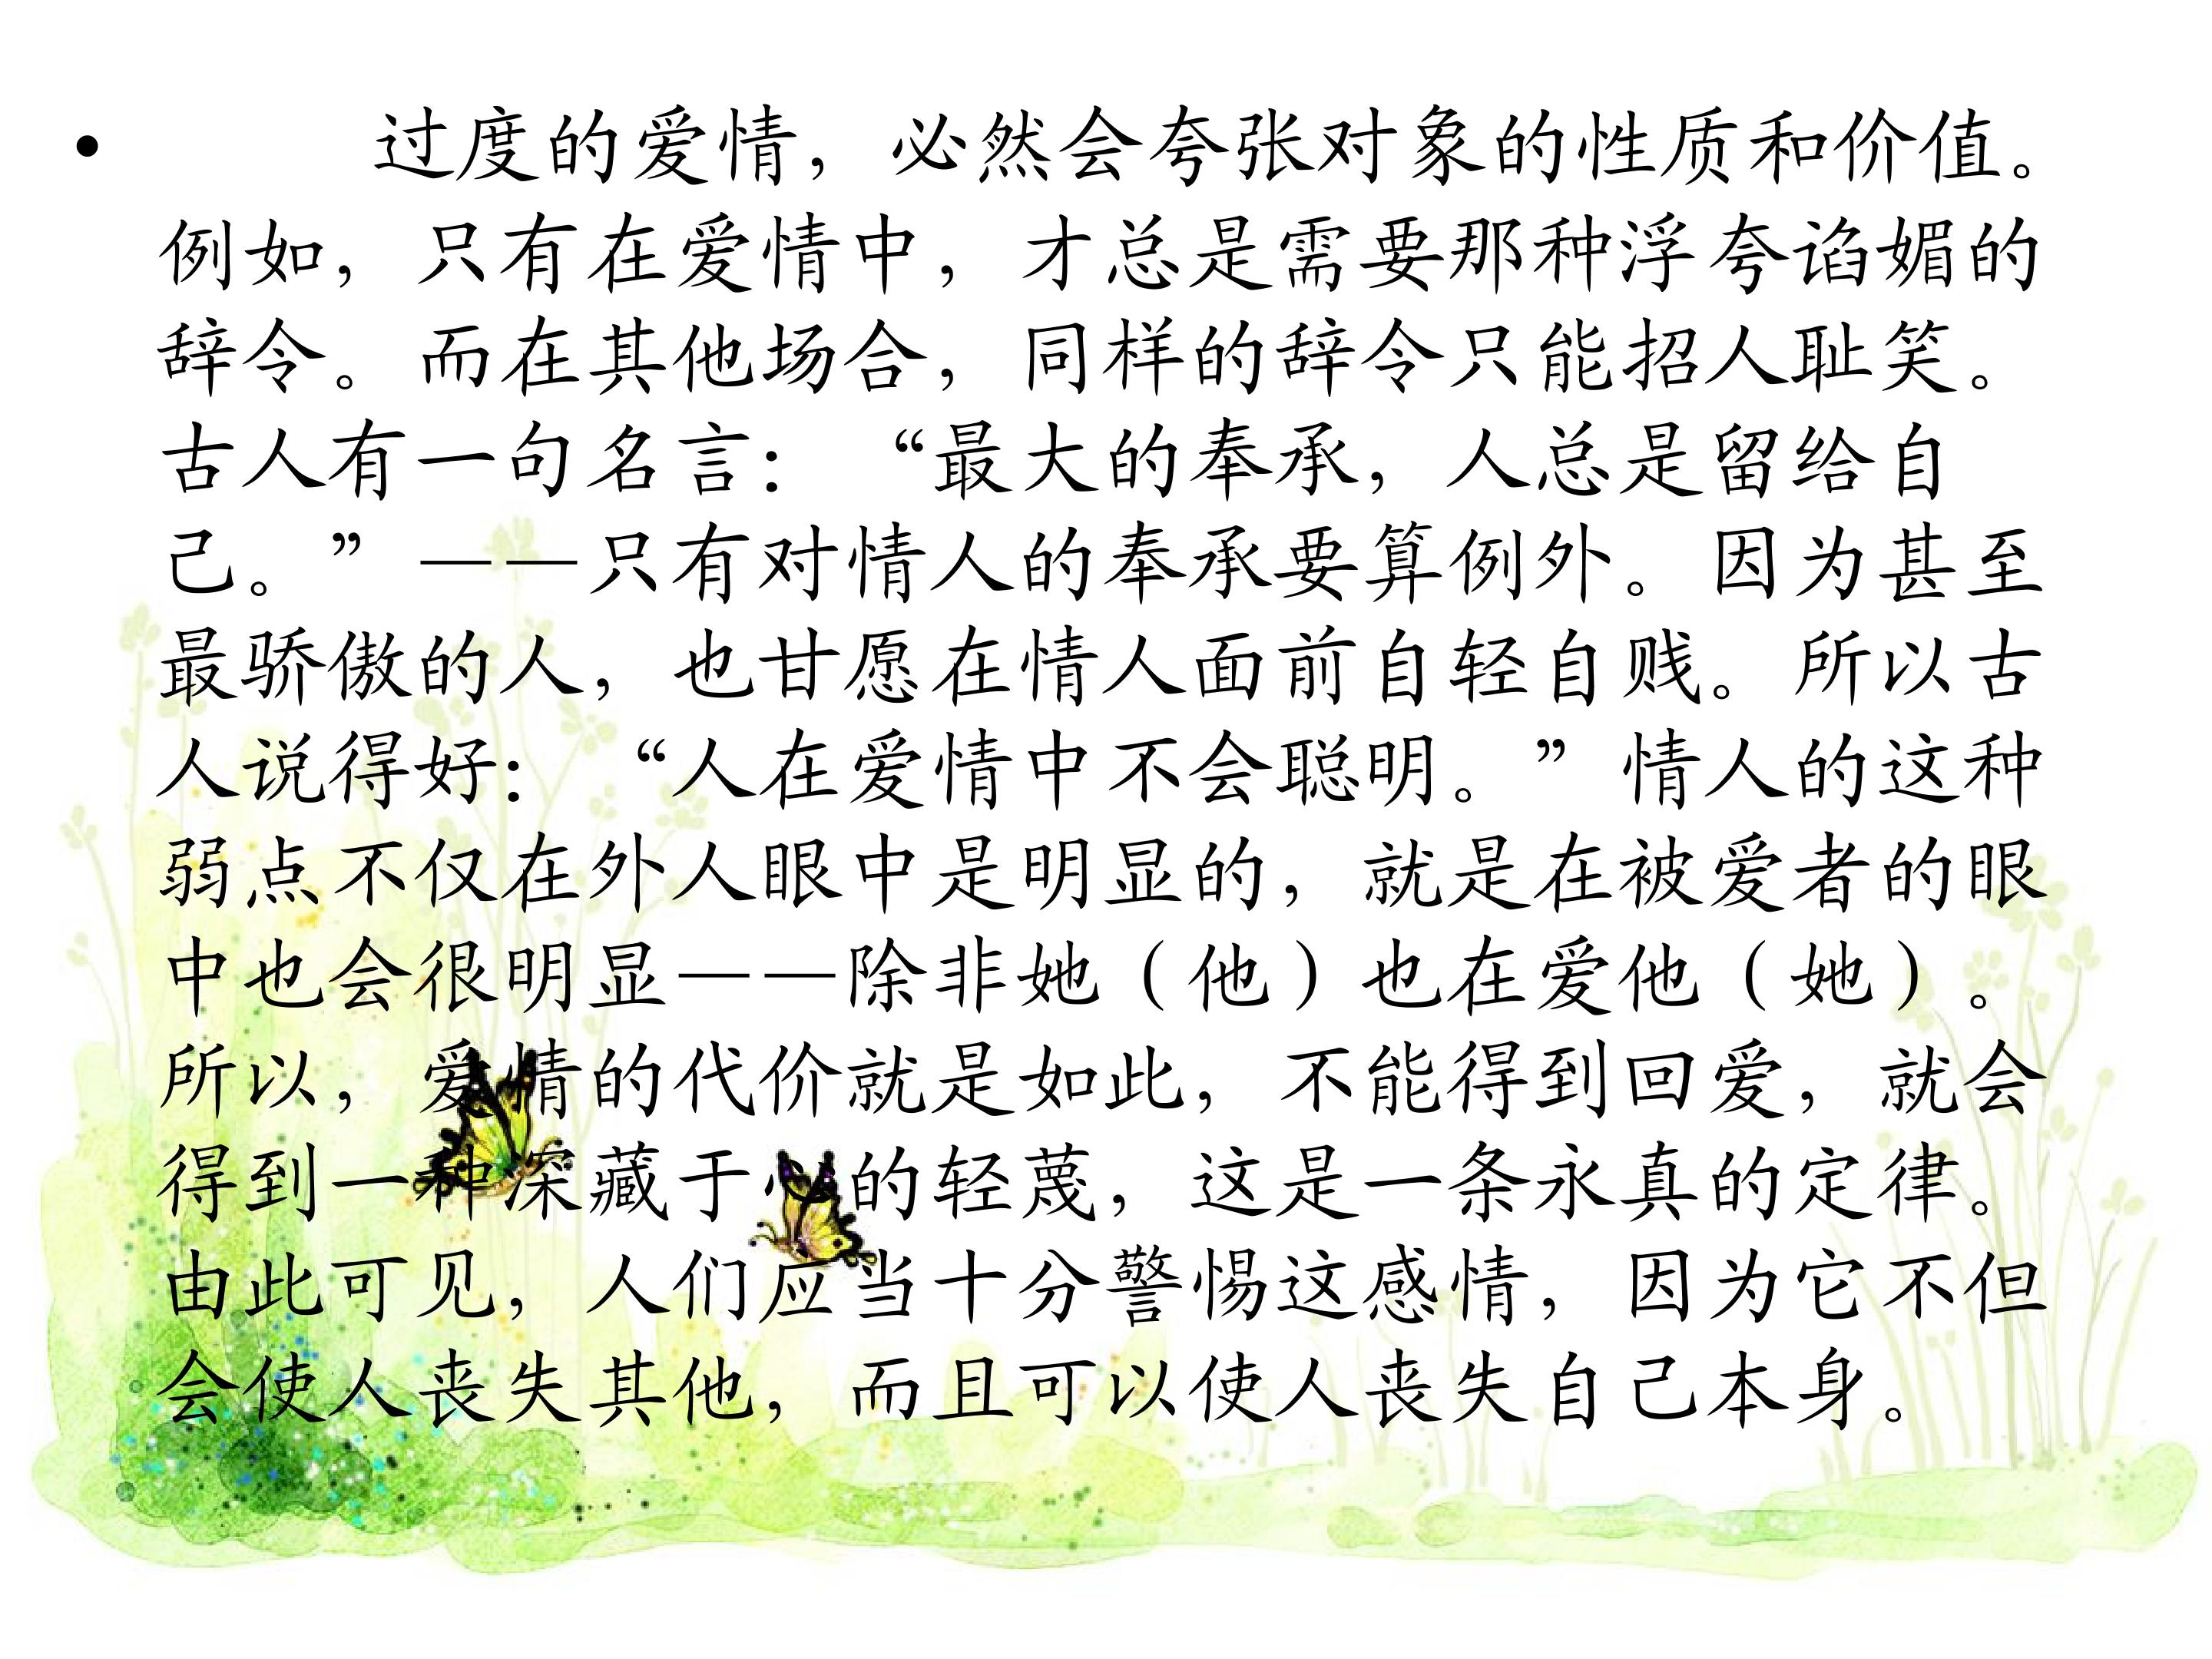 • 过度的爱情，必然会夸张对象的性质和价值。
例如，只有在爱情中，才总是需要那种浮夸谄媚的
辞令。而在其他场合，同样的辞令只能招人耻笑。
古人有一句名言：“最大的奉承，人总是留给自
己。”——只有对情人的奉承要算例外。因为甚至
最骄傲的人，也甘愿在情人面前自轻自贱。所以古
人说得好：“人在爱情中不会聪明。”情人的这种
弱点不仅在外人眼中是明显的，就是在被爱者的眼
中也会很明显——除非她（他）也在爱他（她）。
所以，爱情的代价就是如此，不能得到回爱，就会
得到一种深藏于心的轻蔑，这是一条永真的定律。
由此可见，人们应当十分警惕这感情，因为它不但
会使人丧失其他，而且可以使人丧失自己本身。